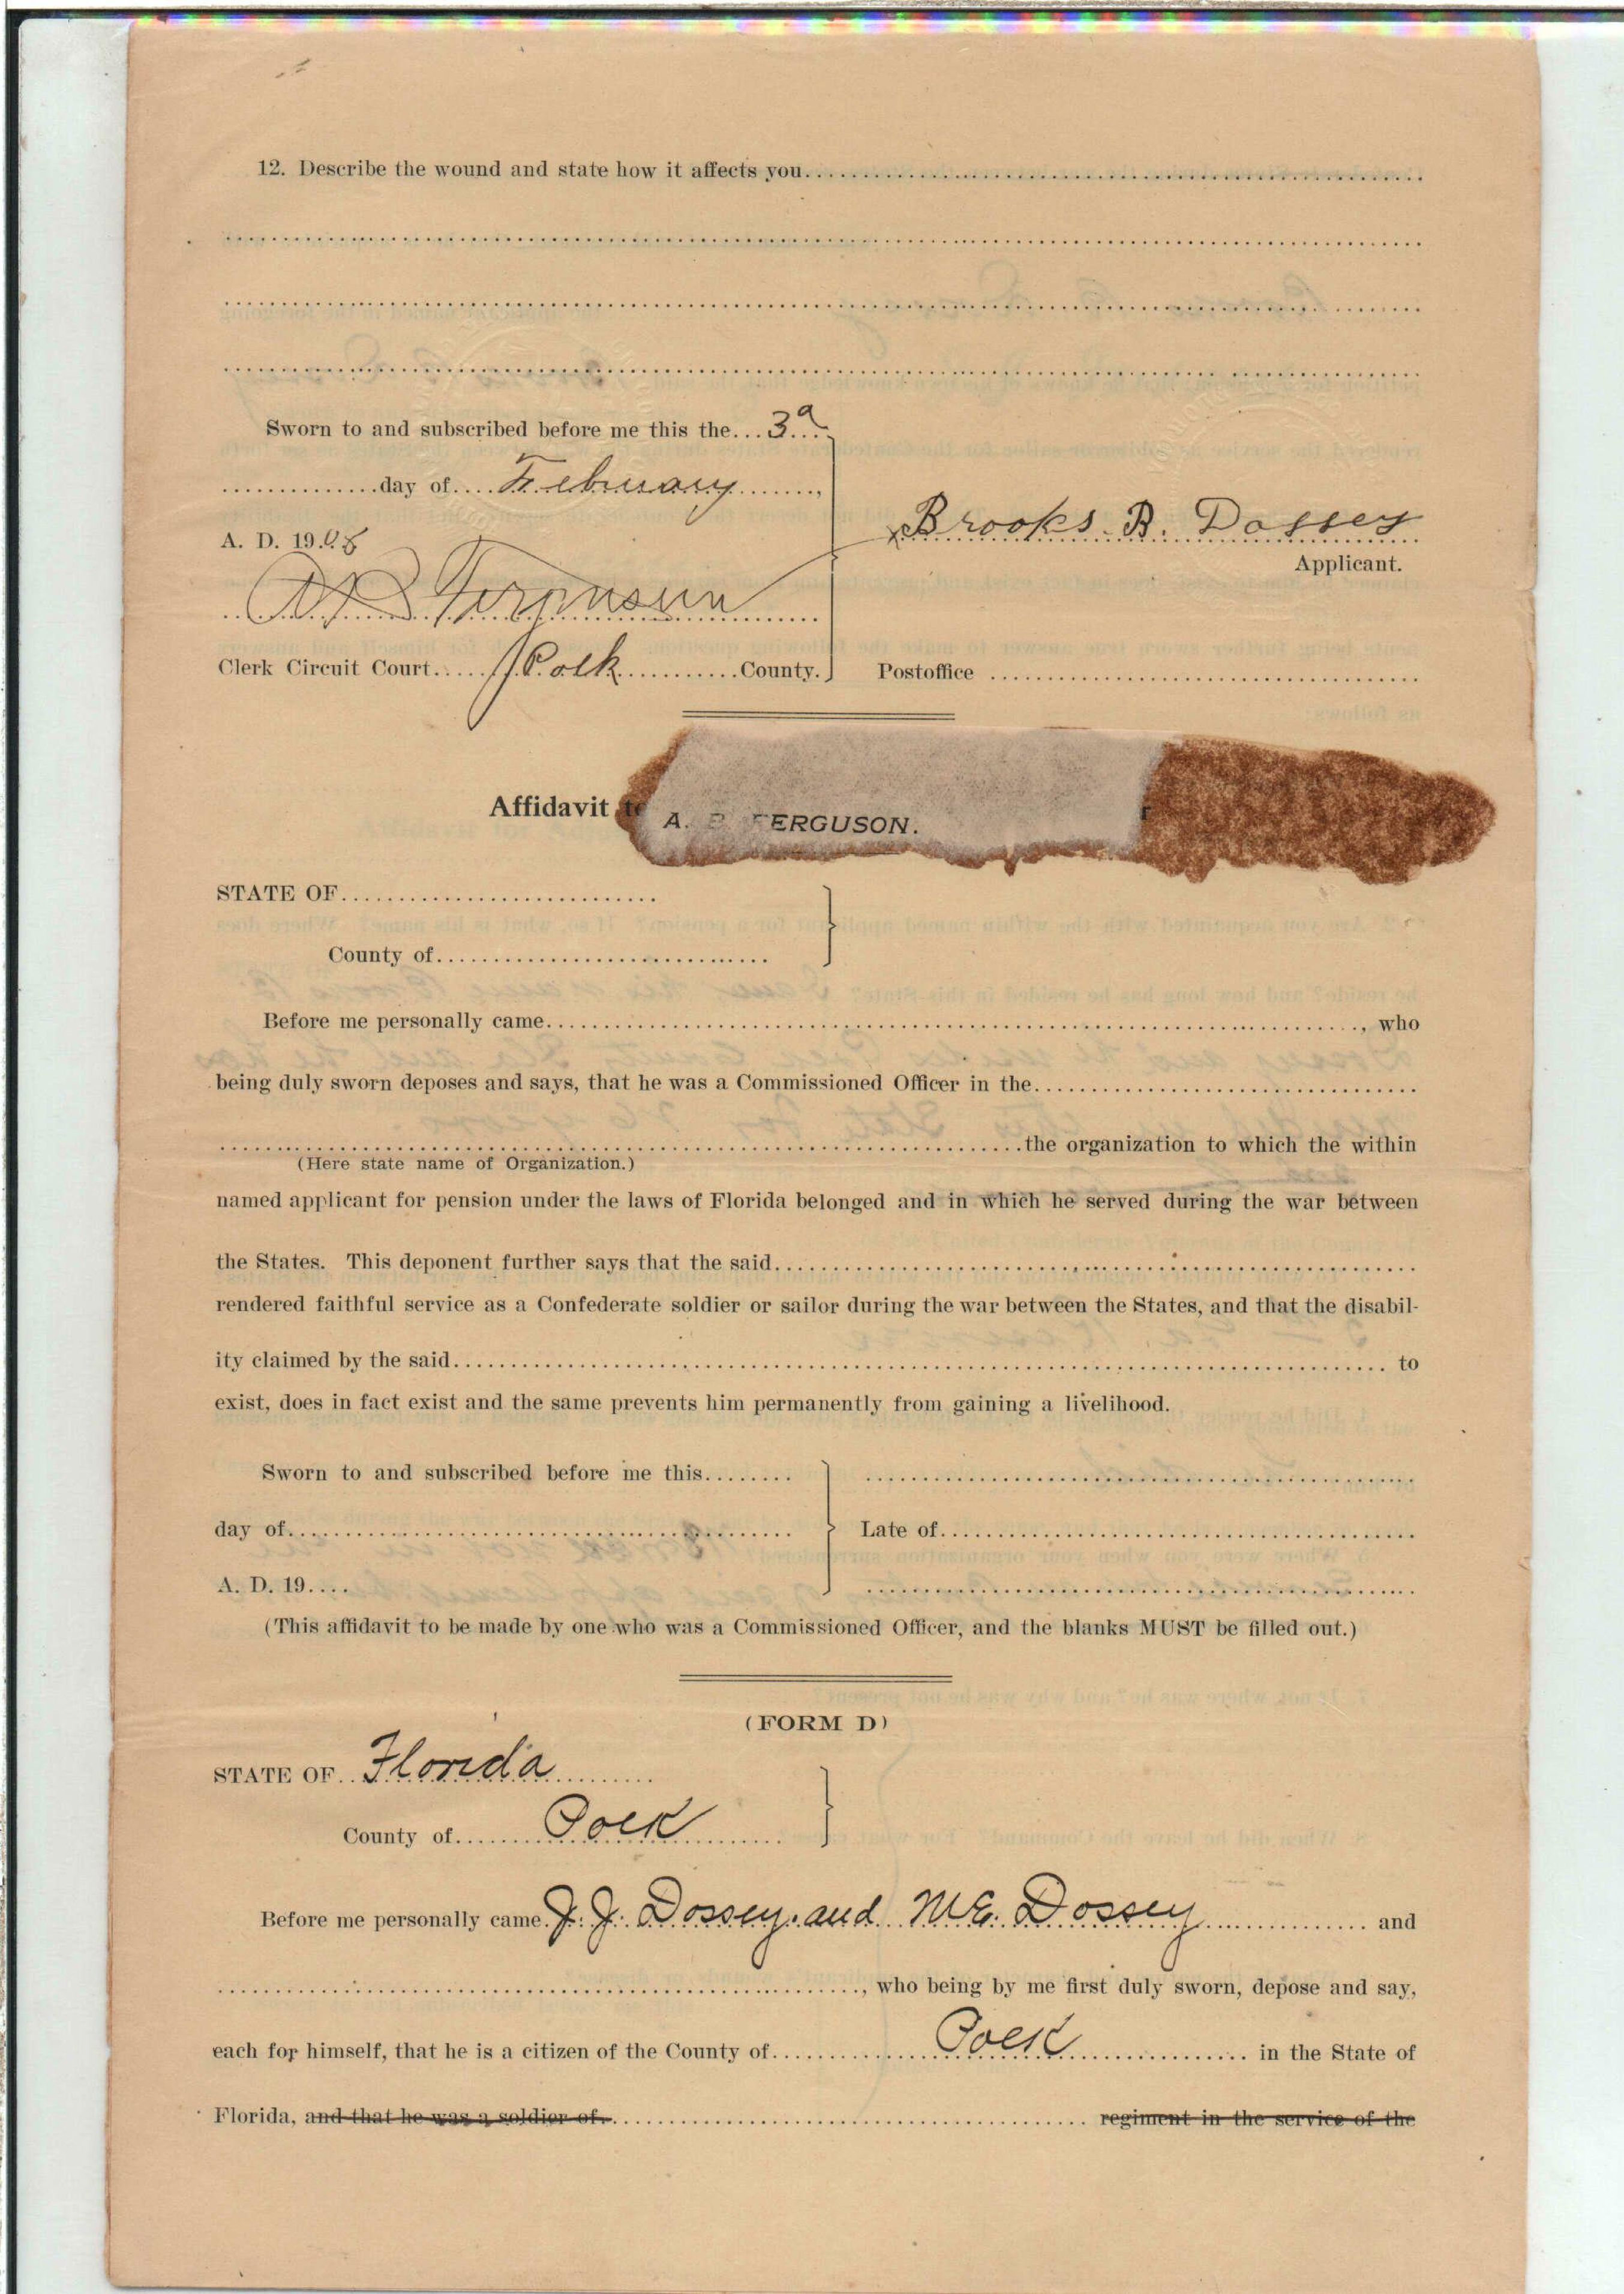 12. Describe the wound and state how it affects you
Sworn to and subscribed before me this the 3d
day of February
A. D. 1908
Brooks. B. Dossey
Applicant.
A. B. Ferguson
Clerk Circuit Court Polk County.
Postoffice
Affidavit
A. B. FERGUSON.
STATE OF
County of
Before me personally came , who
being duly sworn deposes and says, that he was a Commissioned Officer in the
the organization to which the within
(Here state name of Organization.)
named applicant for pension under the laws of Florida belonged and in which he served during the war between
the States. This deponent further says that the said
rendered faithful service as a Confederate soldier or sailor during the war between the States, and that the disabil-
ity claimed by the said to
exist, does in fact exist and the same prevents him permanently from gaining a livelihood.
Sworn to and subscribed before me this
day of
Late of
A. D. 19
(This affidavit to be made by one who was a Commissioned Officer, and the blanks MUST be filled out.)
(FORM D)
STATE OF Florida
County of Polk
Before me personally came J. J. Dossey. and M. E. Dossey and
, who being by me first duly sworn, depose and say,
each for himself, that he is a citizen of the County of Polk in the State of
Florida, and that he was a soldier of regiment in the service of the